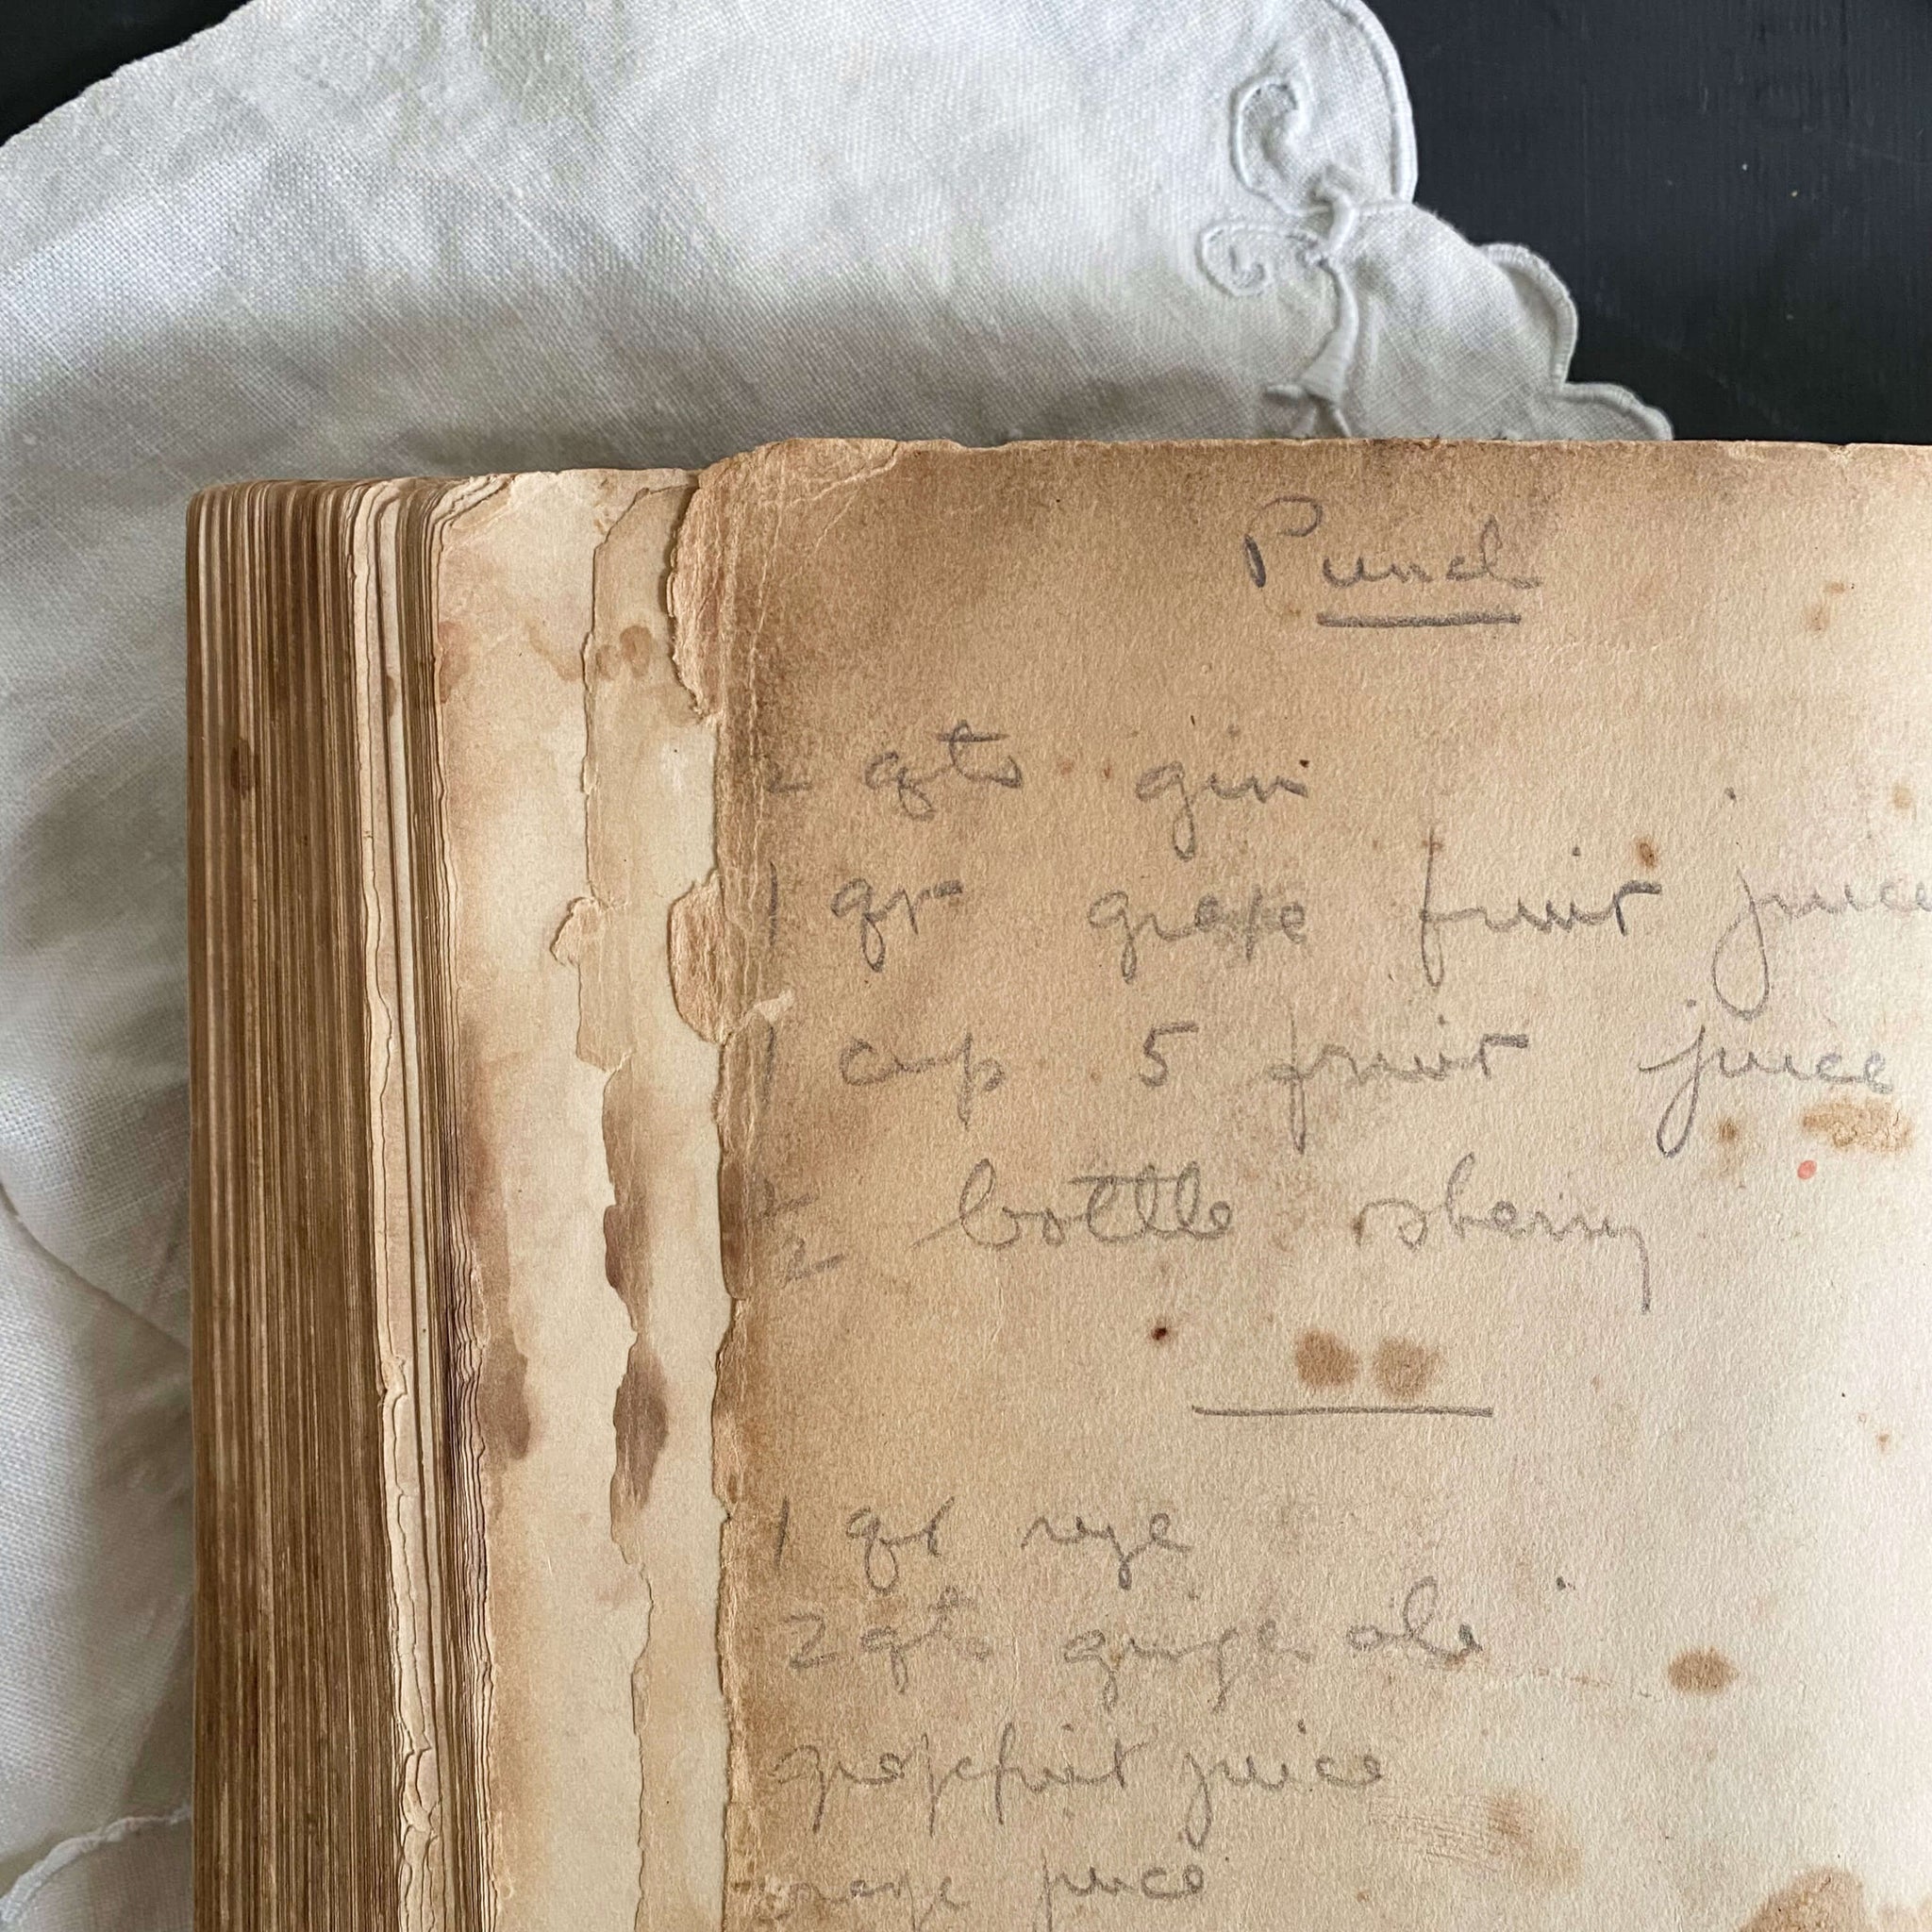 Punch
2 qts gin
1 qt grape fruit juice
1 cup 5 fruit juice
1/2 bottle sherry
1 qt rye
2 qts ginger ale
grapefruit juice
orange juice